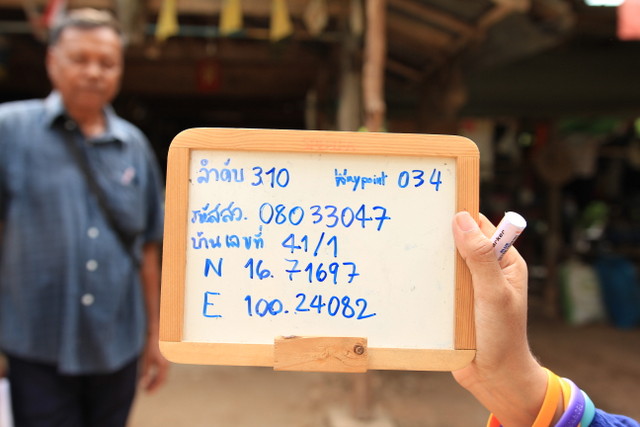 ลำดับ 310 waypoint 034
รหัสสว. 08033047
บ้านเลขที่ 41/1
N 16.71697
E 100.24082